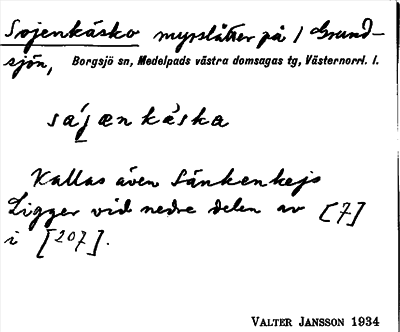 Sojenkåsko myrslåtter på / Grund-
sjön, Borgsjö sn, Medelpads västra domsagas tg, Västernorrl. l.
såjænkåska
Kallas även Sänkenkejs
Ligger vid nedre delen av [7]
i [207].
VALTER JANSSON 1934